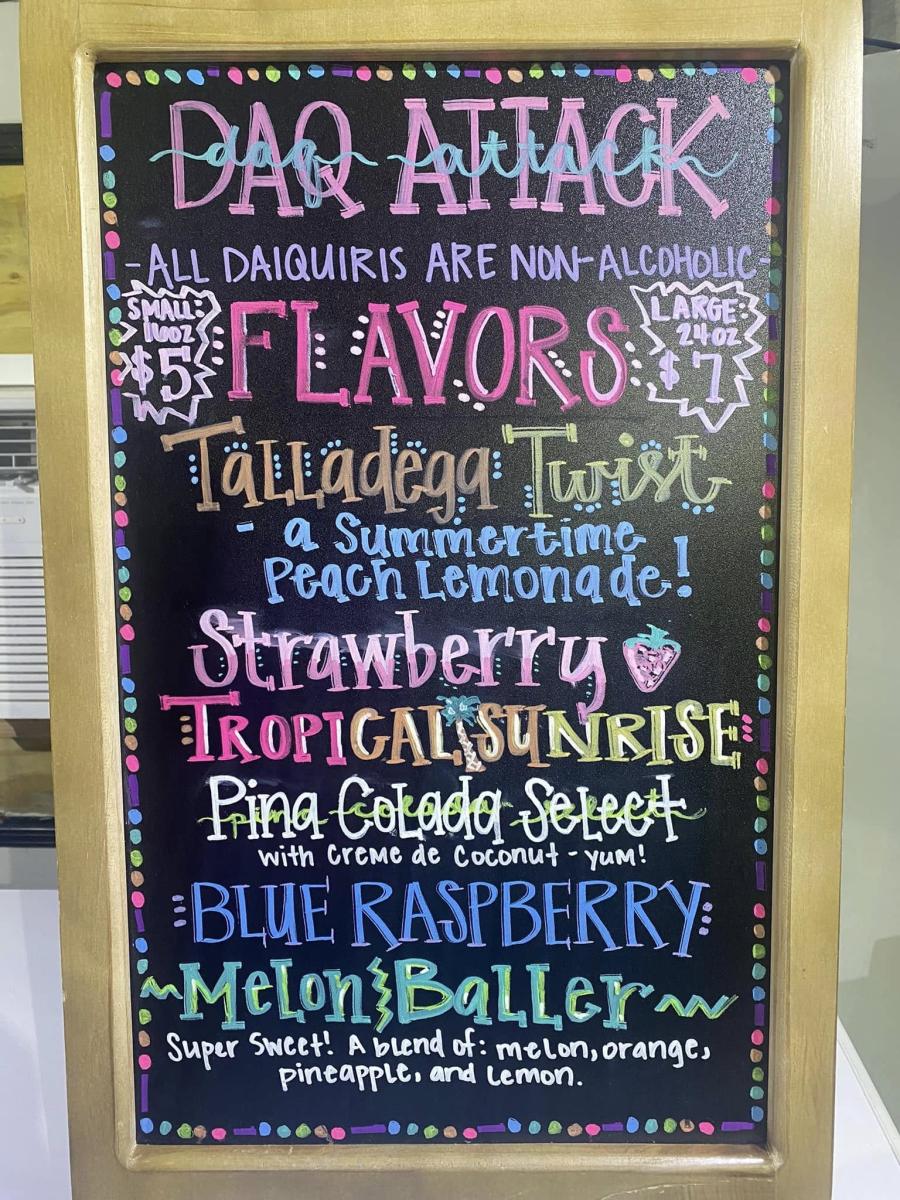 DAQ ATTACK
daq attack
-ALL DAIQUIRIS ARE NON-ALCOHOLIC-
SMALL:
16OZ
$5
FLAVORS
LARGE:
24OZ
$7
Talladega Twist
- a Summertime
Peach Lemonade!
Strawberry
TROPICAL SUNRISE
Pina Colada Select
pina colada select
with Creme de Coconut - yum!
BLUE RASPBERRY
Melon Baller
Super Sweet! A blend of: melon, orange,
pineapple, and Lemon.